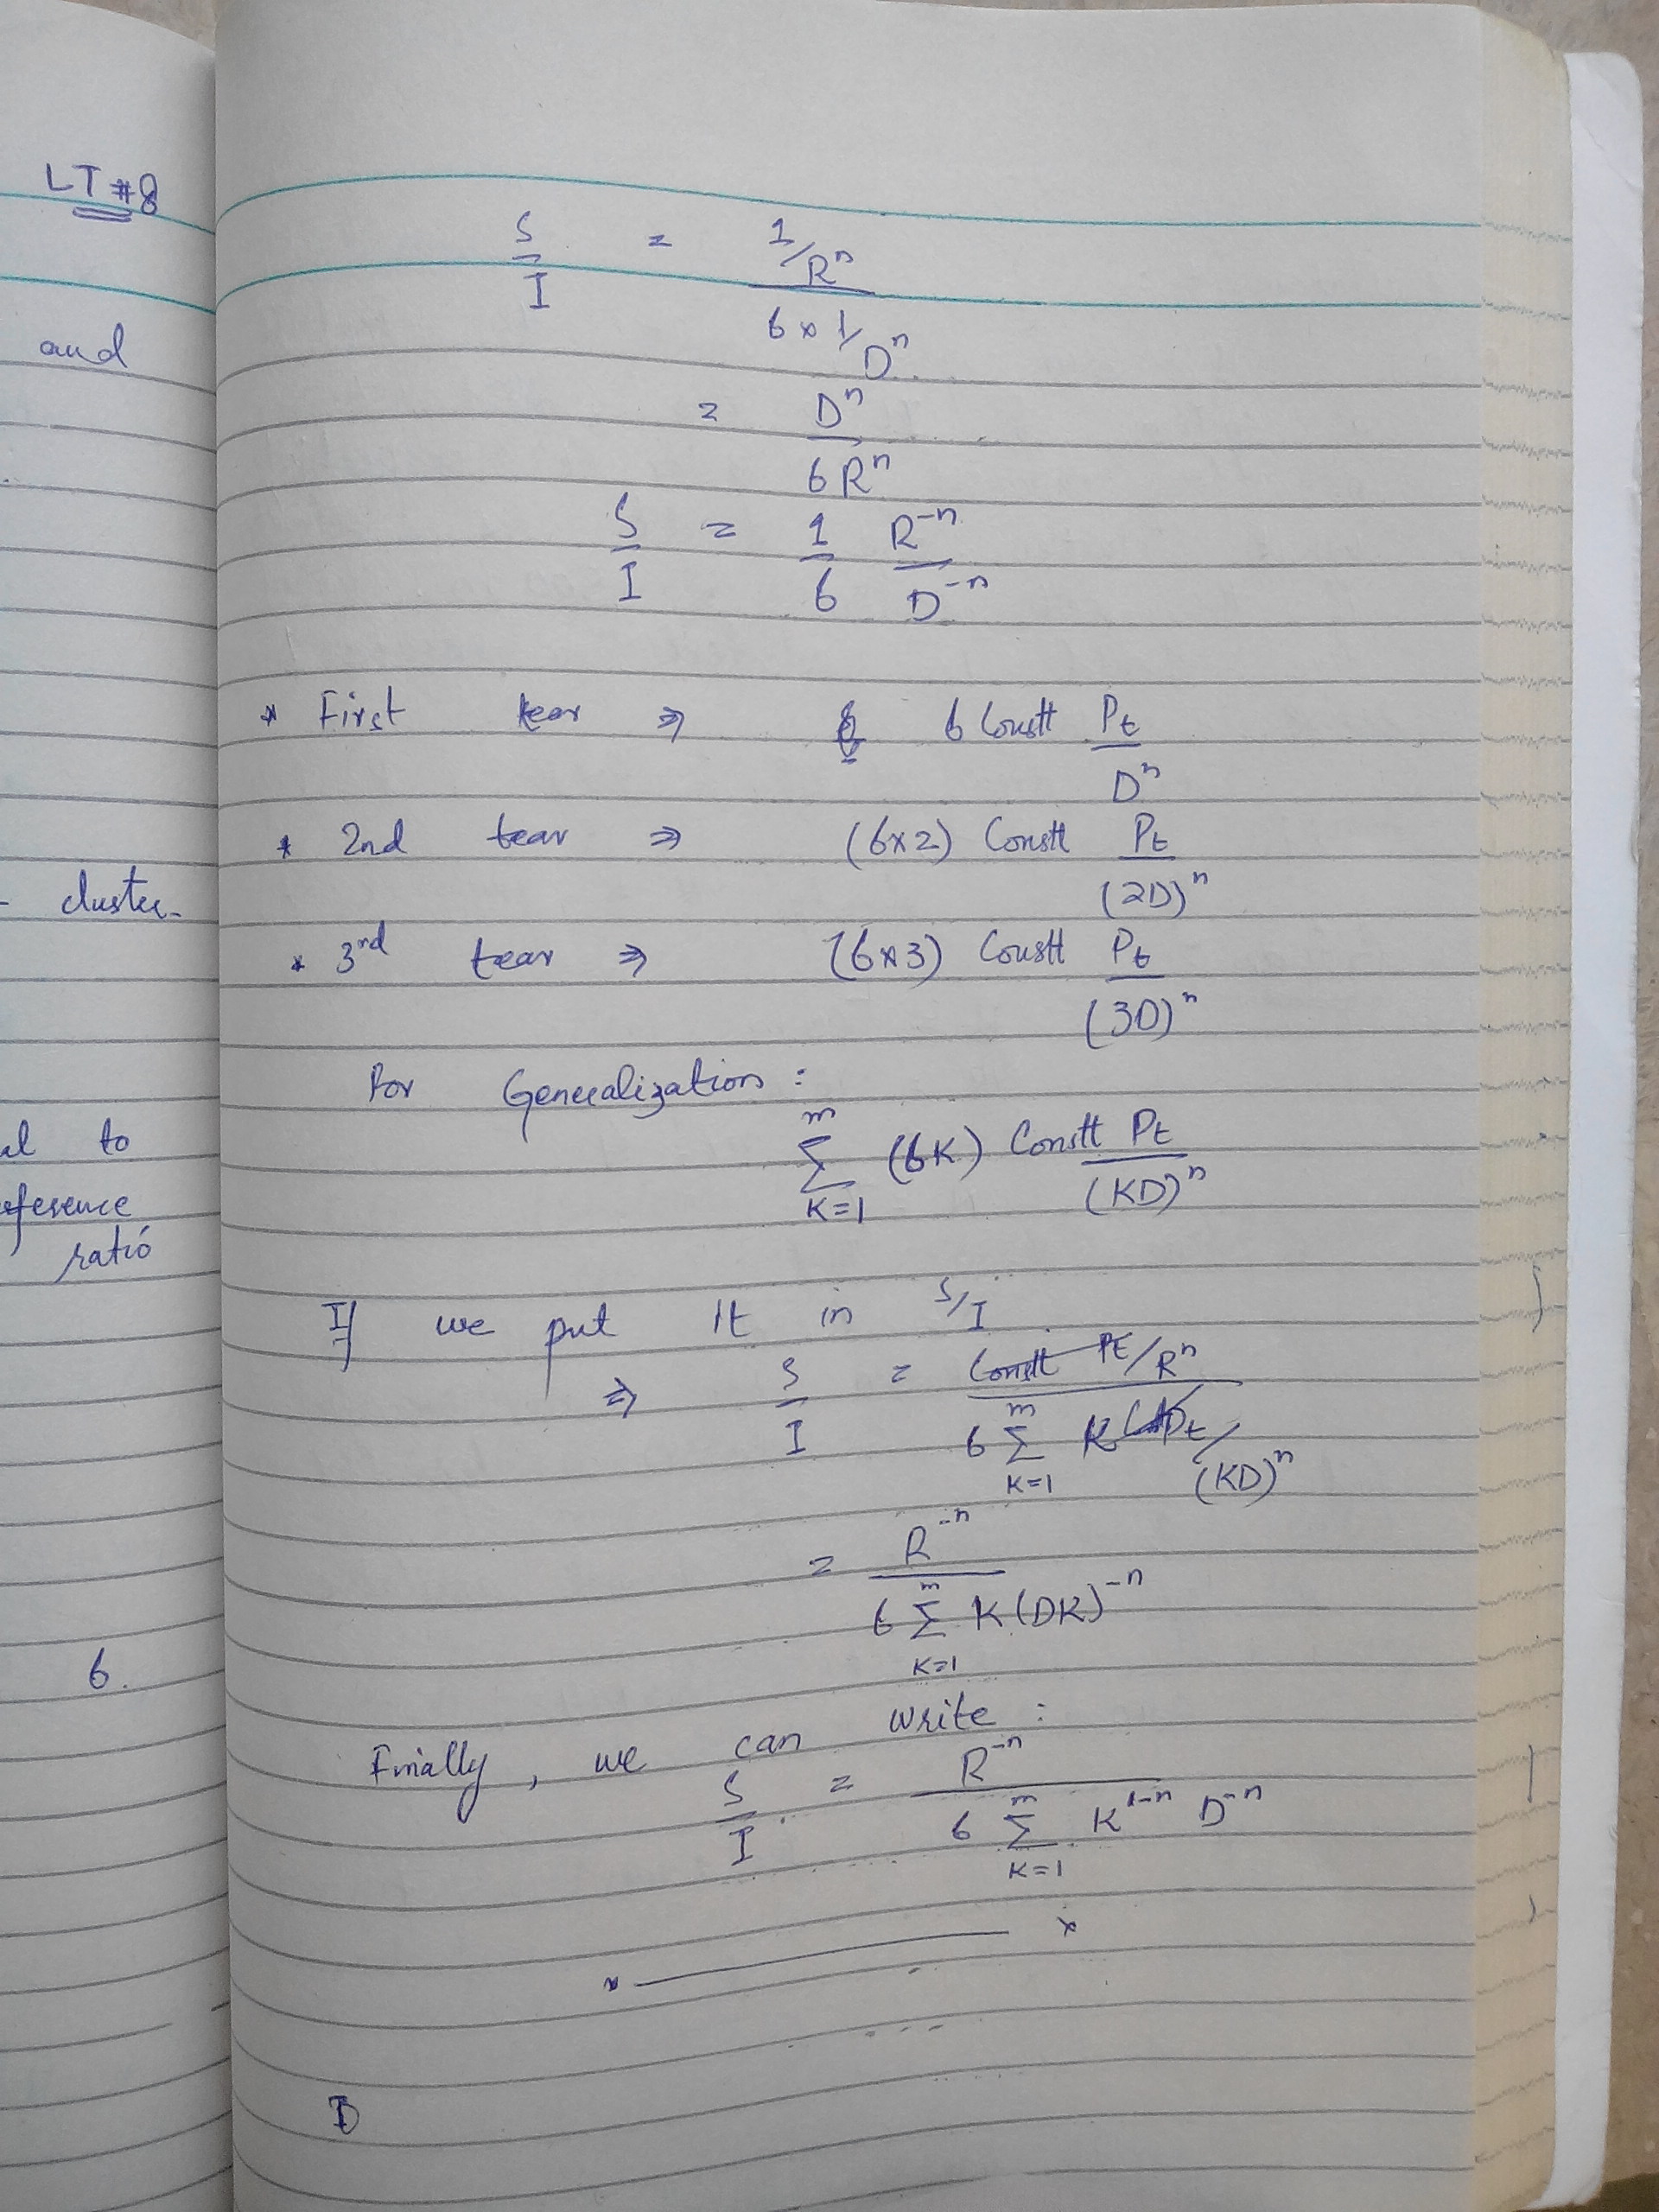 LT #8
and
cluster-
al to
eference
ratio
6.
S/I = (1/Rⁿ)/(6 × 1/Dⁿ)
= Dⁿ/6Rⁿ
S/I = 1/6 R⁻ⁿ/D⁻ⁿ
* First tear ⇒ 6 Constt Pt/Dⁿ
* 2nd tear ⇒ (6×2) Constt Pt/(2D)ⁿ
* 3rd tear ⇒ (6×3) Constt Pt/(3D)ⁿ
For Generalization:
m Σ K=1 (6K) Constt Pt/(KD)ⁿ
If we put It in S/I
⇒ S/I = (Constt Pt/Rⁿ)/(6 m Σ K=1 K C Pt/(KD)ⁿ)
= R⁻ⁿ/(6 m Σ K=1 K(DK)⁻ⁿ)
Finally, we can write:
S/I = R⁻ⁿ/(6 m Σ K=1 K¹⁻ⁿ D⁻ⁿ)
× ——— ×
D